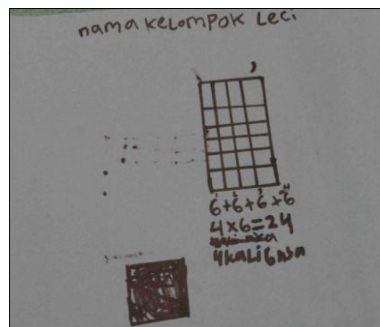 nama kelompok Leci
6+6+6+6
4x6=24
4 kali 6nya